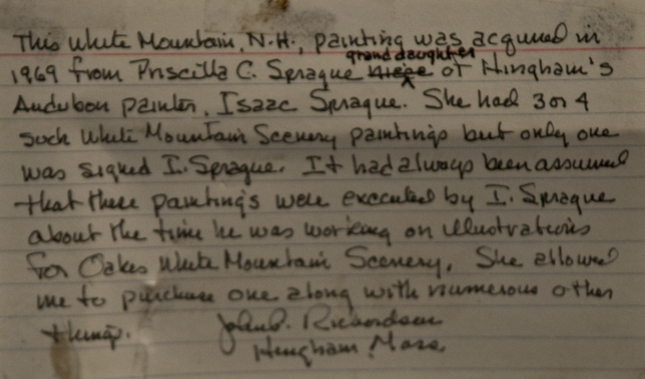 This White Mountain, N.H., painting was acquired in
granddaughter
1969 from Priscilla C. Sprague niece of Hingham's
Audubon painter, Isaac Sprague. She had 3 or 4
such White Mountain Scenery paintings but only one
was signed I. Sprague. It had always been assumed
that these painting's were executed by I. Sprague
about the time he was working on illustrations
for Oakes White Mountain Scenery. She allowed
me to purchase one along with numerous other
things. John P. Richardson
Hingham, Mass.